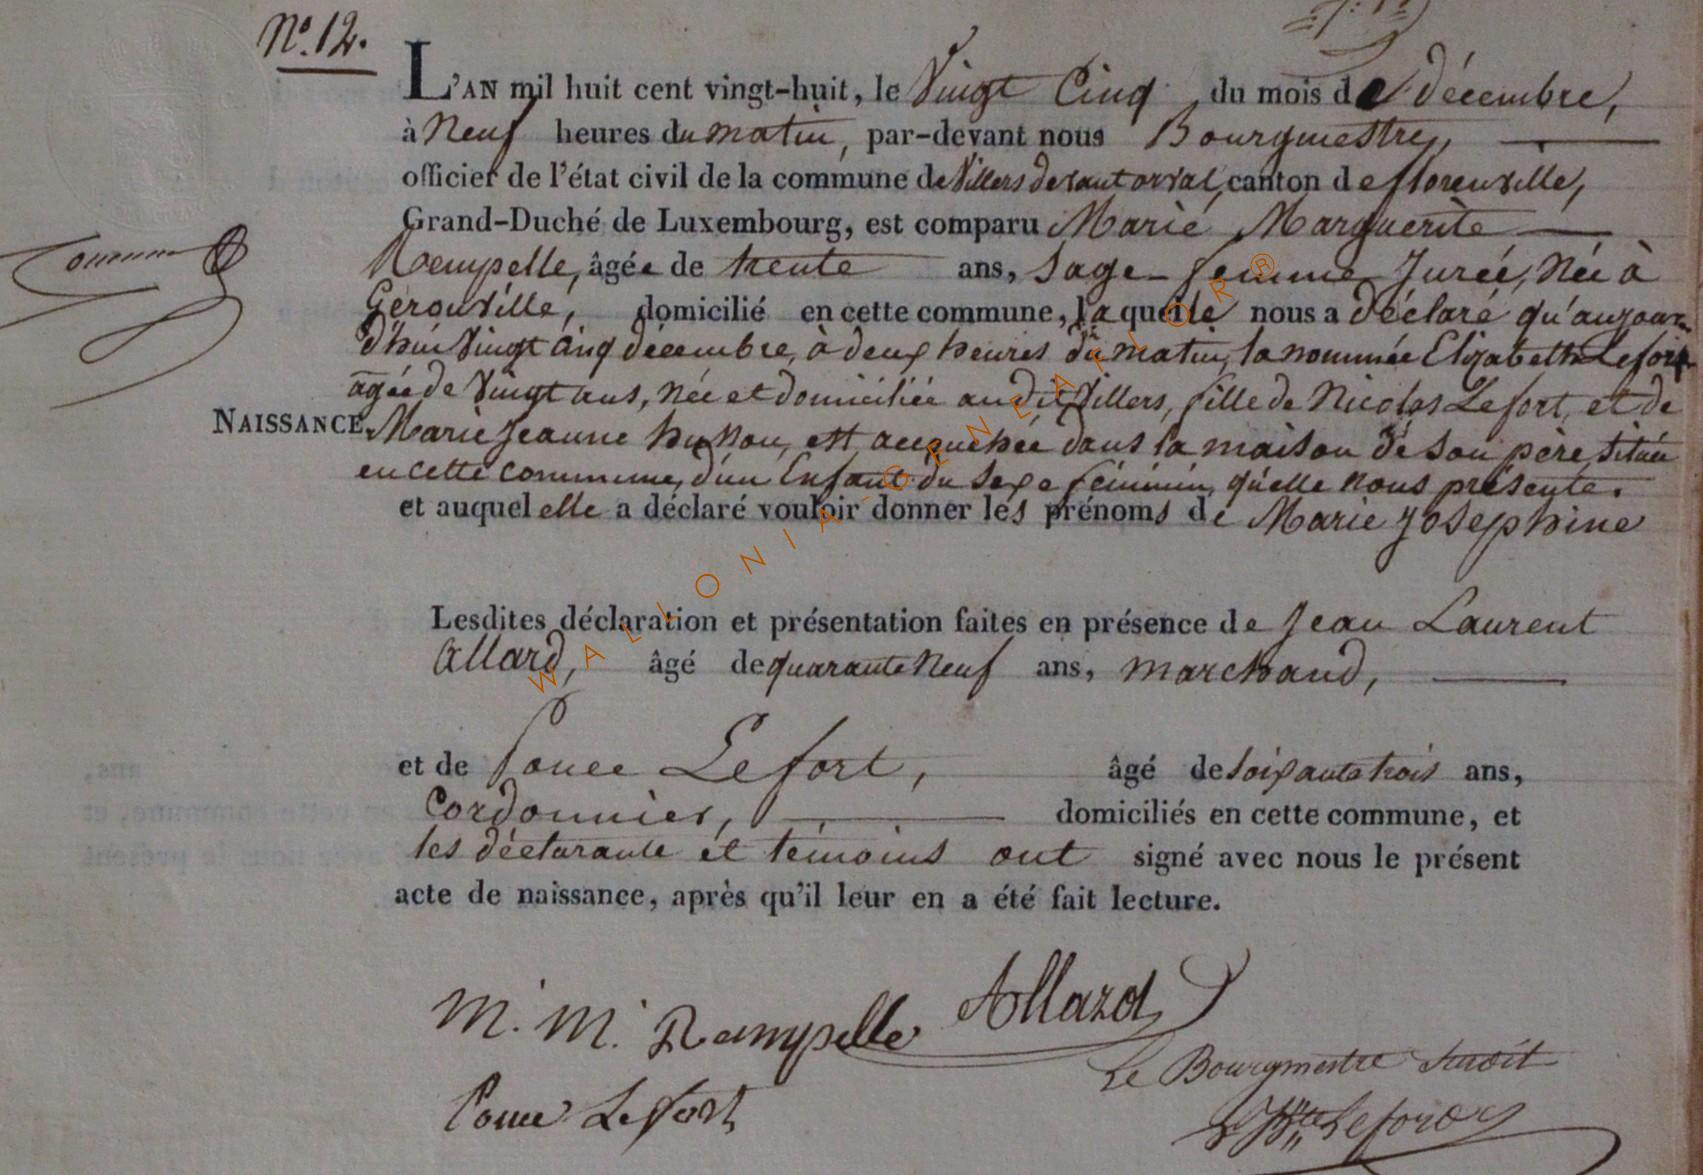 N° 12.
L'AN mil huit cent vingt-huit, le Vingt Cinq du mois de décembre,
à Neuf heures du matin, par-devant nous Bourgmestre,
officier de l'état civil de la commune de Villers devant orval, canton de florenville,
Grand-Duché de Luxembourg, est comparu Marie Marguerite
Rempelle, âgée de trente ans, sage-femme Jurée, Née à
Gérouville, domicilié en cette commune, laquelle nous a déclaré qu'aujour-
d'hui Vingt Cinq décembre, à deux heures du matin, la nommée Elizabeth Lefort
agée de Vingt ans, Née et domiciliée au dit Villers, fille de Nicolas Lefort, et de
NAISSANCE. Marie Jeanne, est accouchée dans la maison de son père située
en cette commune, d'un Enfant du sexe féminin, qu'elle nous présente.
et auquel elle a déclaré vouloir donner les prénoms de Marie Josephine
Lesdites déclaration et présentation faites en présence de Jean Laurent
Allard, âgé de quarante Neuf ans, marchand,
et de Ponce Lefort, âgé de soixante trois ans,
Cordonnier, domiciliés en cette commune, et
les déclarante et témoins ont signé avec nous le présent
acte de naissance, après qu'il leur en a été fait lecture.
M. M. Rempelle Allard
Le Bourgmestre
Ponce Lefort
WALLONIA-GENEAFLOR®